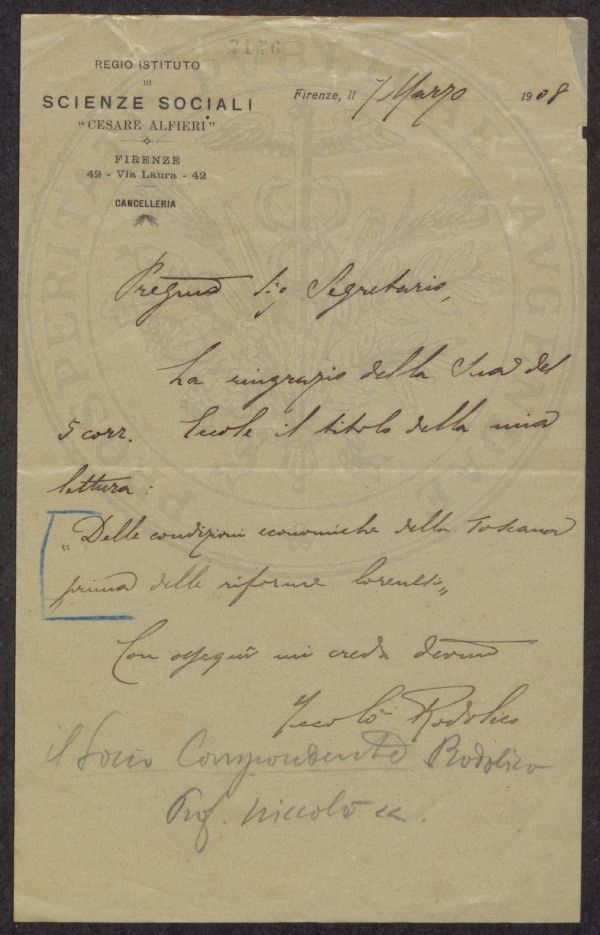 7176
REGIO ISTITUTO
DI
SCIENZE SOCIALI
"CESARE ALFIERI"
FIRENZE
42 - Via Laura - 42
CANCELLERIA
Firenze, il 7 Marzo 1908
PROSPERITATI PUBLICAE AUGENDAE
Pregmo Sig Segretario,
La ringrazio della Sua del
5 corr. Eccole il titolo della mia
lettura:
"Delle condizioni economiche della Toscana
prima delle riforme lorenesi„
Con ossequi mi creda devmo
Niccolò Rodolico
il Socio Corrispondente Rodolico
Prof. Niccolò